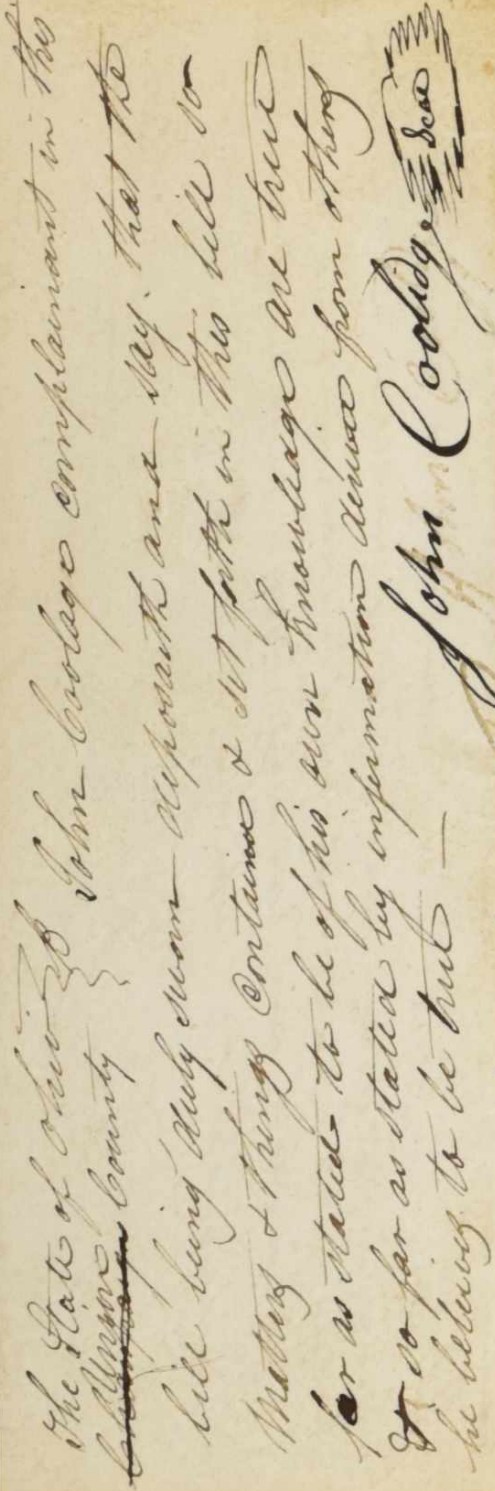 The State of Ohio } ss
Union County } John Coolage complainant in this
bill being duly sworn deposeth and say. that the
matters & things contained & set forth in this bill so
far as stated to be of his own knowledge are true
& so far as stated by information derived from others
he believes to be true —
John Coolidge Seal